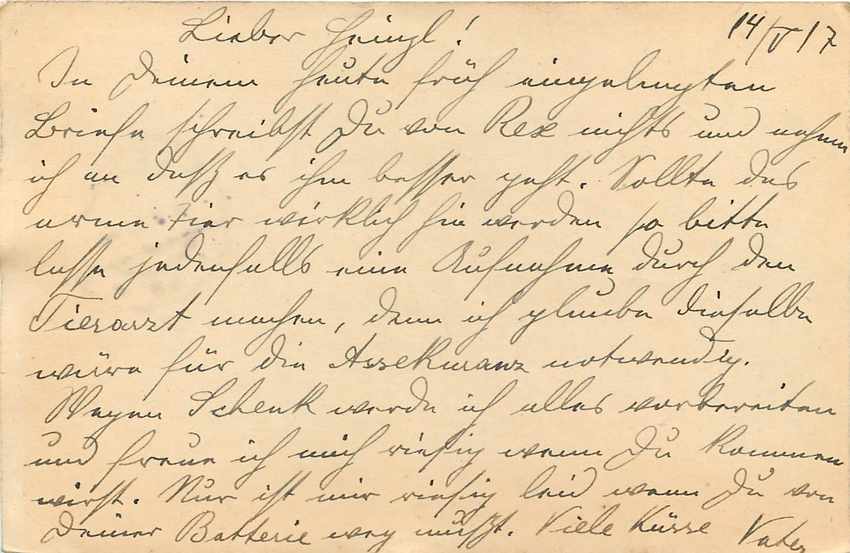 14/V 17
Lieber Heinzl!
In Deinem heute früh eingelangten
Briefe schreibst Du von Rex nichts und nehme
ich an daß es ihm besser geht. Sollte das
arme Tier wirklich hin werden so bitte
lasse jedenfalls eine Aufnahme durch den
Tierarzt machen, denn ich glaube dieselbe
wäre für die Assekuranz notwendig.
Wegen Schenk werde ich alles vorbereiten
und freue ich mich riesig wenn Du kommen
wirst. Nur ist mir riesig leid wenn Du von
Deiner Batterie weg mußt. Viele Küsse Vater